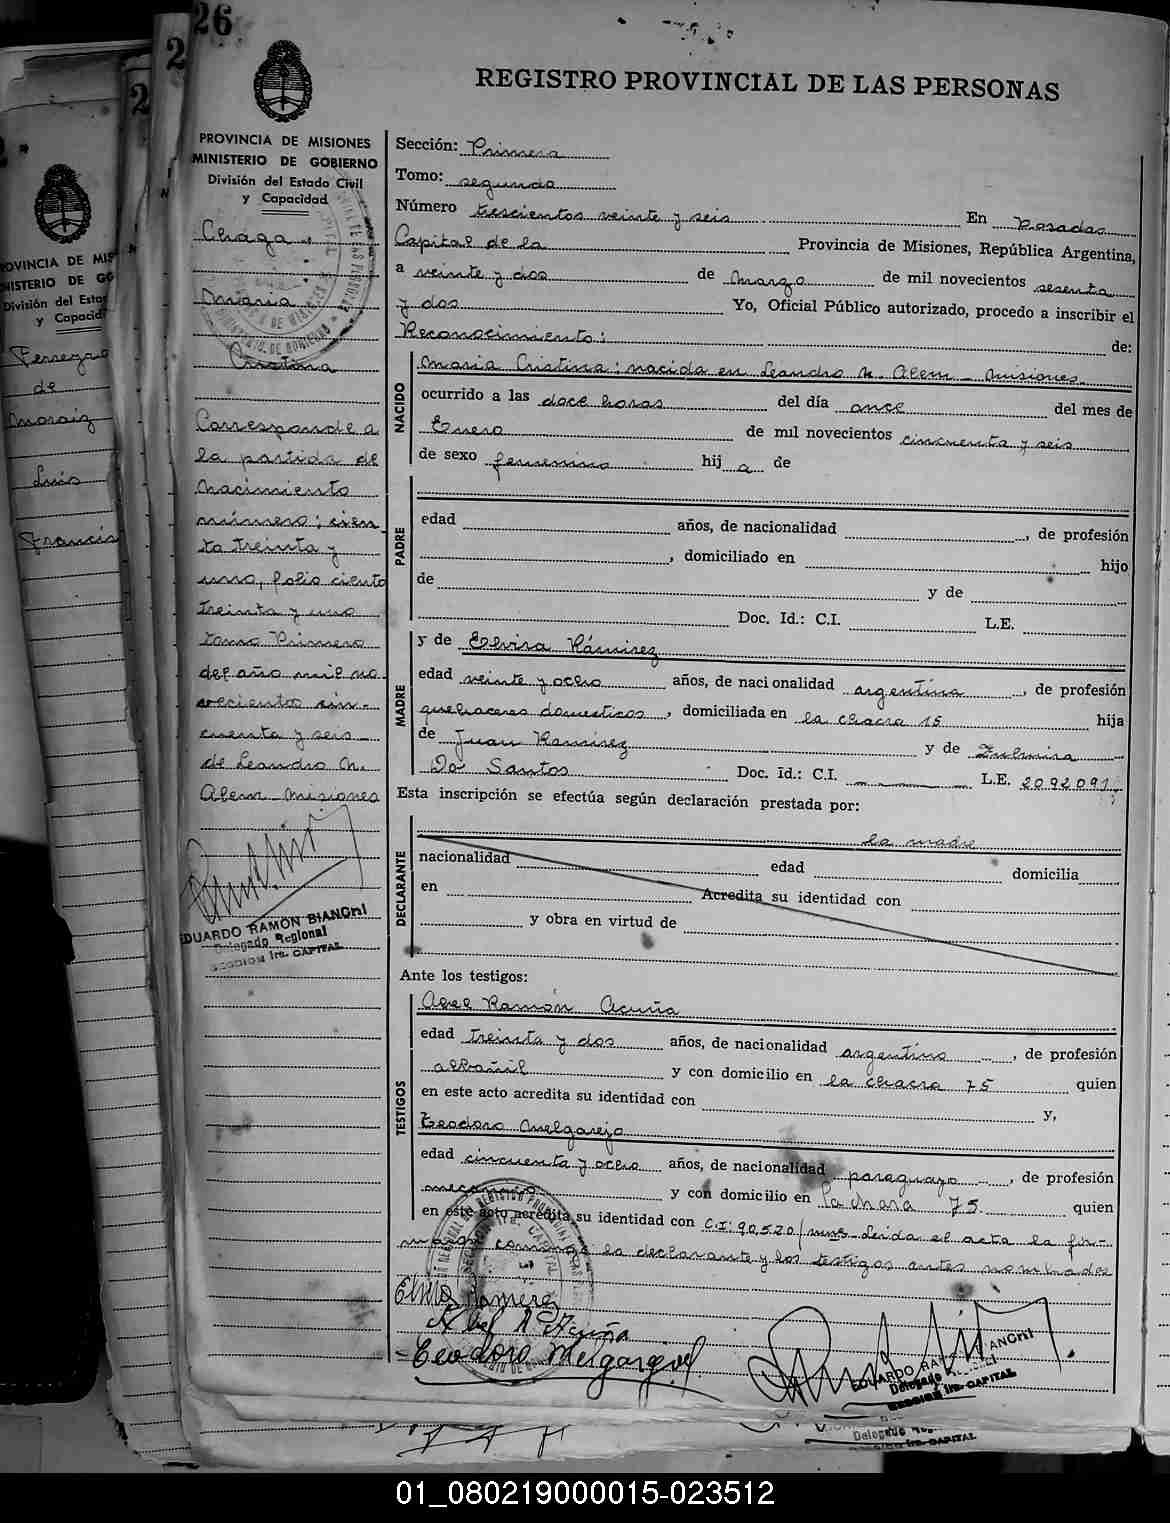 26
REGISTRO PROVINCIAL DE LAS PERSONAS
PROVINCIA DE MISIONES
MINISTERIO DE GOBIERNO
División del Estado Civil
y Capacidad
Chaga
Maria
Cristina
Corresponde a
la partida de
Nacimiento
número; cien
to treinta y
uno, folio ciento
treinta y uno
tomo Primero
del año mil no
vecientos cin-
cuenta y seis
de Leandro N.
Alem - Misiones
EDUARDO RAMON BIANCHI
Delegado Regional
SECCION 1ra. CAPITAL
Sección: Primera
Tomo: segundo
Número trescientos veinte y seis En Posadas
Capital de la Provincia de Misiones, República Argentina,
a veinte y dos de Marzo de mil novecientos sesenta
y dos Yo, Oficial Público autorizado, procedo a inscribir el
Reconocimiento: de:
NACIDO
Maria Cristina; nacida en Leandro N. Alem - Misiones.
ocurrido a las doce horas del día once del mes de
Enero de mil novecientos cincuenta y seis
de sexo femenino hij a de
PADRE
edad años, de nacionalidad , de profesión
, domiciliado en hijo
de y de
Doc. Id.: C.I. L.E.
MADRE
y de Elvira Rámirez
edad veinte y ocho años, de nacionalidad argentina , de profesión
quehaceres domesticos , domiciliada en la chacra 15 hija
de Juan Ramirez y de Zulmira
Do Santos Doc. Id.: C.I. L.E. 2092091;
Esta inscripción se efectúa según declaración prestada por:
DECLARANTE
la madre
nacionalidad edad domicilia
en Acredita su identidad con
y obra en virtud de
Ante los testigos:
TESTIGOS
Abel Ramón Acuña
edad treinta y dos años, de nacionalidad argentino , de profesión
albañil y con domicilio en la chacra 75 quien
en este acto acredita su identidad con y,
Teodoro Melgarejo
edad cincuenta y ocho años, de nacionalidad paraguayo , de profesión
mecanico y con domicilio en la chacra 75. quien
en este acto acredita su identidad con C.I. 90.520 leida el acta la fir-
man conmigo la declarante y los testigos antes nombrados
Elvira Ramirez
Abel R Acuña
Teodoro Melgarejo
EDUARDO RAMON BIANCHI
Delegado Regional
SECCION 1ra. CAPITAL
Delegado
SECCION 1ra. CAPITAL
PROVINCIA DE MIS
MINISTERIO DE GO
División del Estad
y Capacid
Ferreyra
de
Moraiz
Luis
Francis
01_080219000015-023512